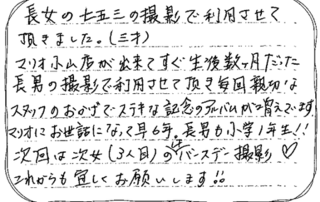 長女の七五三の撮影で利用させて
頂きました。(三才)
マリオ小山店が出来てすぐ生後数ヶ月だった
長男の撮影で利用させて頂き毎回親切な
スタッフのおかげでステキな記念のアルバムが増えてます。
マリオにお世話になって早6年。長男も小学1年生!!
次回は次女(3人目)の1才バースデー撮影♡
これからも宜しくお願いします!!